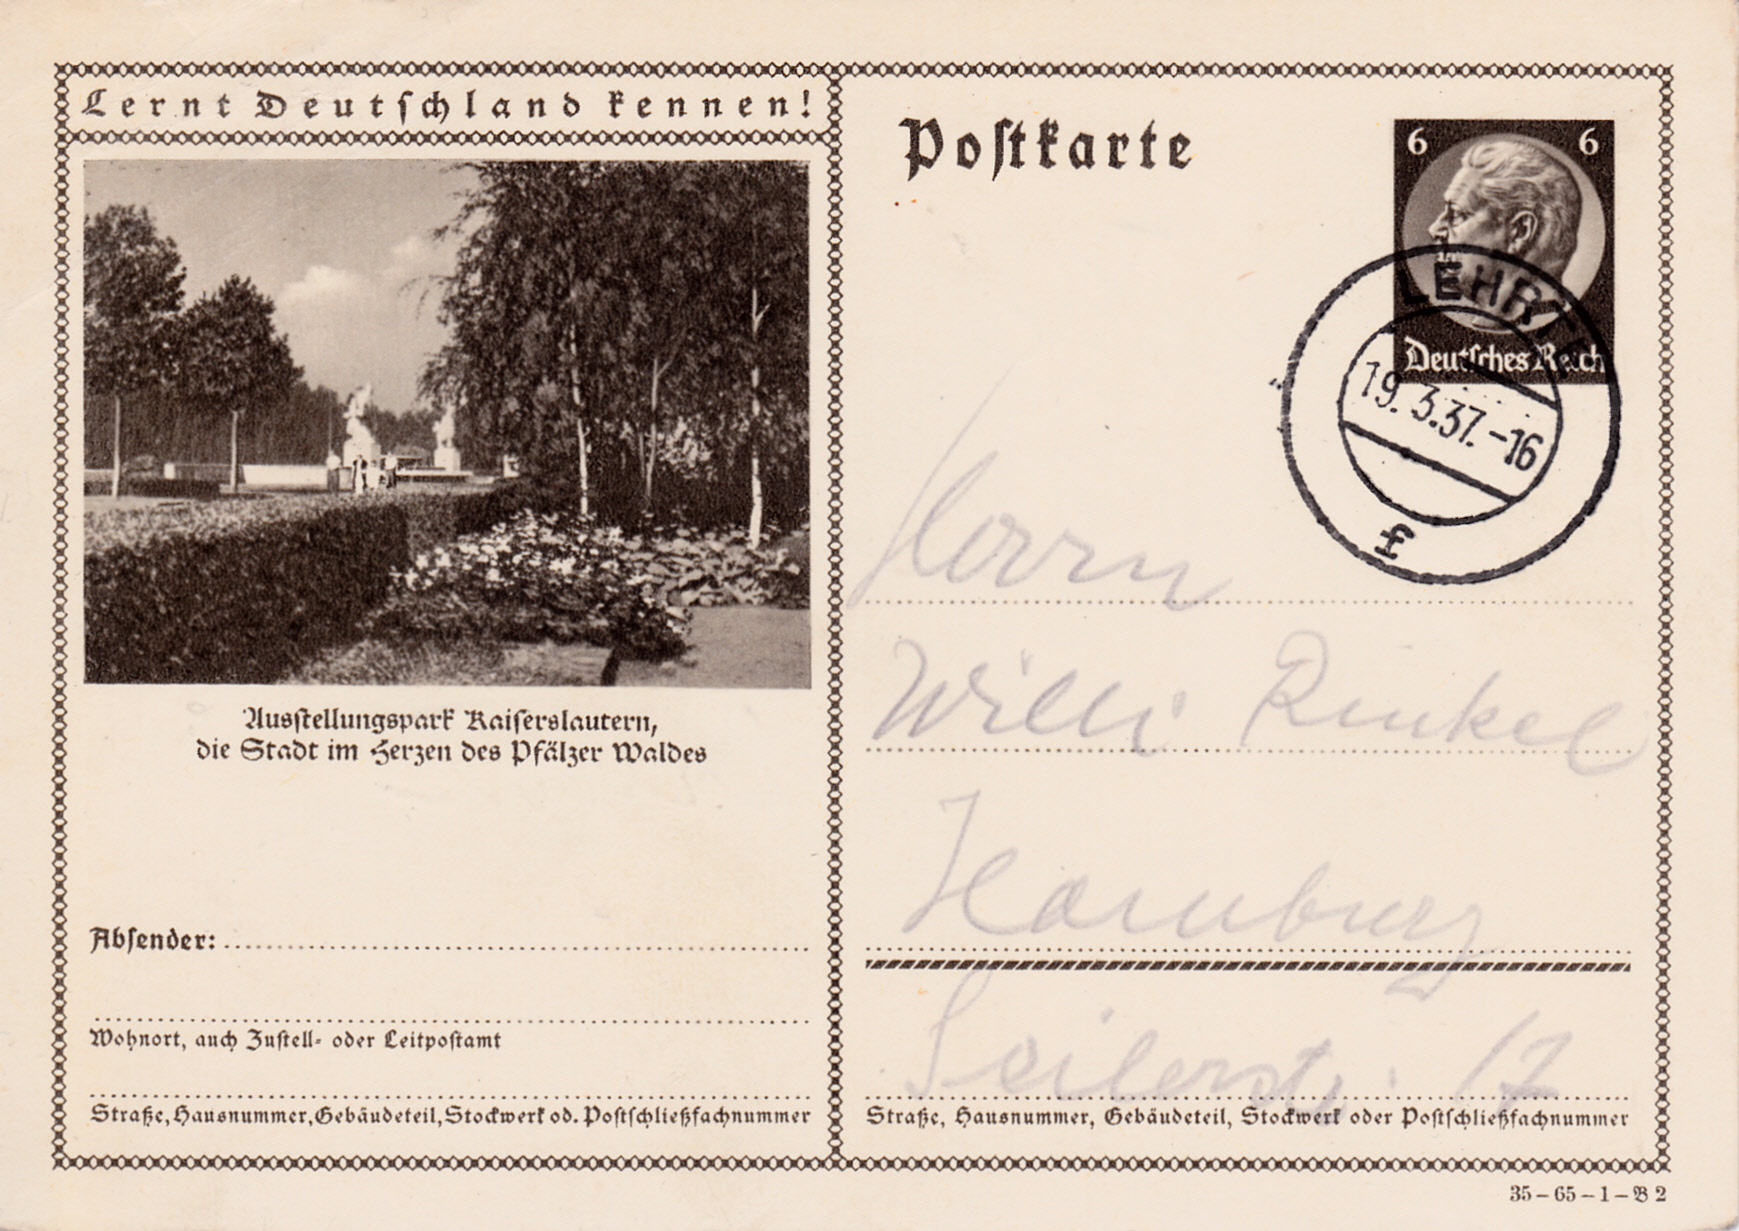 Lernt Deutschland kennen!
Ausstellungspark Kaiserslautern,
die Stadt im Herzen des Pfälzer Waldes
Absender:
Wohnort, auch Zustell- oder Leitpostamt
Straße, Hausnummer, Gebäudeteil, Stockwerk od. Postschließfachnummer
Postkarte
6 6
Deutsches Reich
LEHRTE
19.3.37.-16
f
Herrn
Willi Runkel
Hamburg
Seilerstr. 17
Straße, Hausnummer, Gebäudeteil, Stockwerk oder Postschließfachnummer
35-65-1-B 2